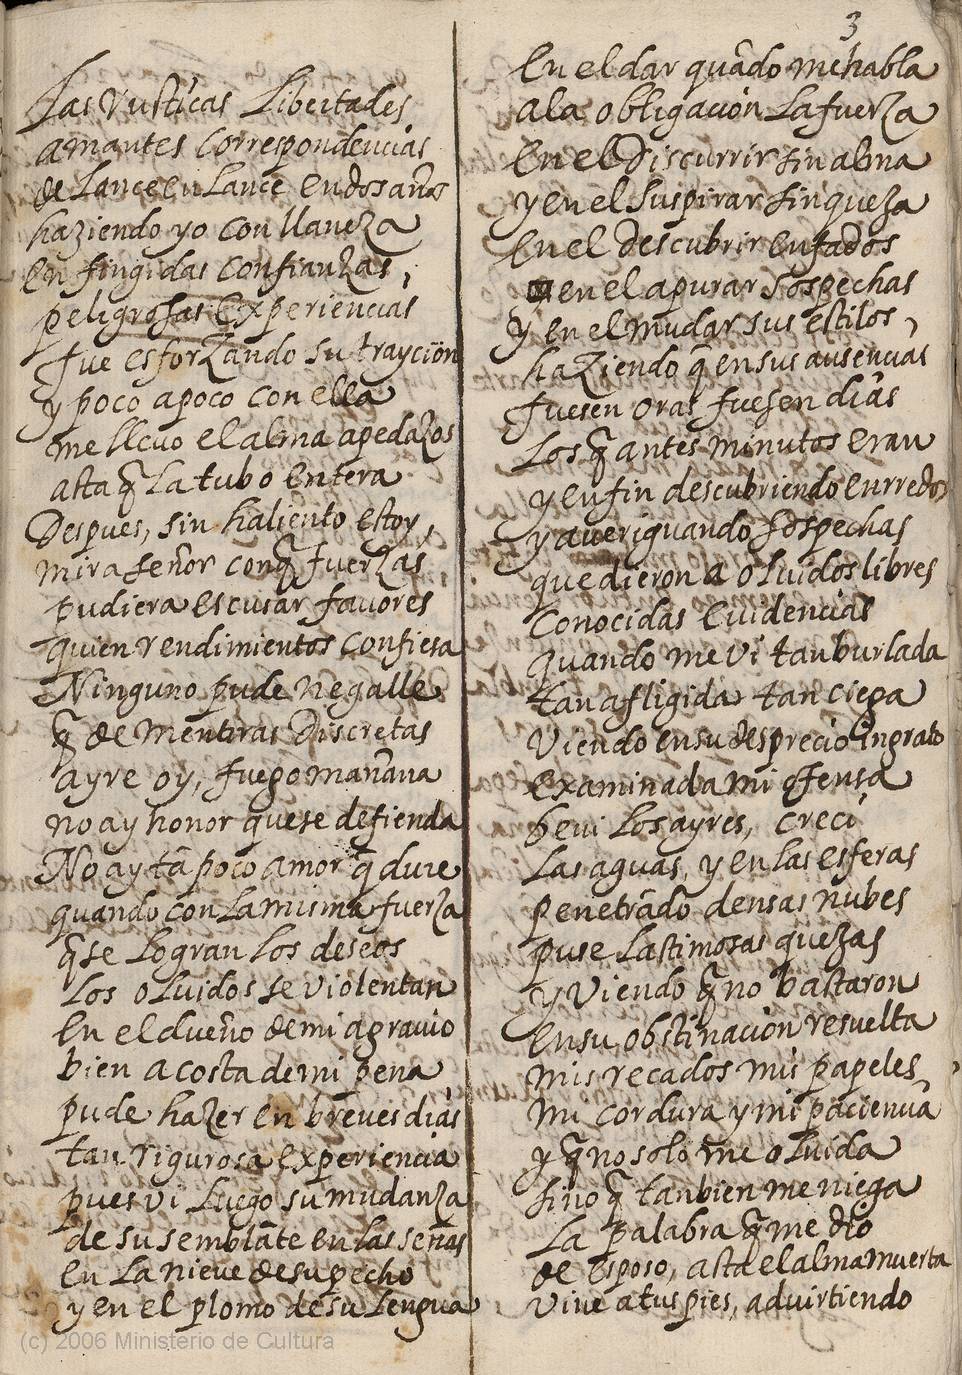 3
Las rusticas Libertades
amantes correspondencias
de Lance en Lance en dos años
haziendo yo con llaneza
en fingidas confianzas,
peligrosas Experiencias
fue esforzando su trayçion
y poco a poco con ella
me lleuo el alma a pedazos
asta q̃ La tubo entera
Despues, sin haliento estoy,
mira señor con q̃ fuerzas
pudiera escusar fauores
quien rendimientos confiesa
Ninguno pude negalle
q̃ de mentiras Discretas
ayre oy, fuego mañana
no ay honor que se defienda
No ay tã poco amor q̃ dure
quando con La misma fuerza
q̃ se Logran Los deseos
Los oluidos se violentan
En el dueño de mi agrauio
bien a costa de mi pena
pude hazer en breues dias
tan rigurosa experiencia
pues vi Luego su mudanza
de su semblãte en las señas
En La nieue de su pecho
y en el plomo de su Lengua
En el dar quãdo me habla
a la obligacion La fuerza
En el Discurrir sin alma
y en el suspirar sin queza
En el descubrir enfados
en el apurar sospechas
Y en el mudar sus estilos,
haziendo q̃ en sus ausencias
fuesen oras fuesen dias
Los q̃ antes minutos eran
y en fin descubriendo enrredos
y aueriguando sospechas
que dieron a oluidos libres
Conocidas Euidencias
quando me vi tan burlada
tan afligida tan ciega
Viendo en su desprecio ingrato
Examinada mi ofensa
beui Los ayres, creci
Las aguas, y en las esferas
penetrãdo densas nubes
puse Lastimosas quezas
y Viendo q̃ no bastaron
En su obstinacion resuelta
mis recados mis papeles,
mi cordura y mi paciencia
y q̃ no solo me oluida
sino q̃ tanbien me niega
La palabra q̃ me dio
de Esposo, asta el alma muerta
Viue a tus pies, aduirtiendo
(c) 2006 Ministerio de Cultura